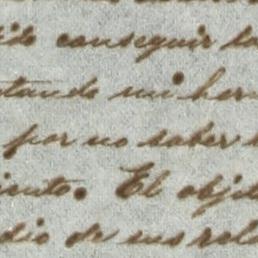 ido conseguir la
tando mi her
por no saber
iento. El obje
dio de mo rela